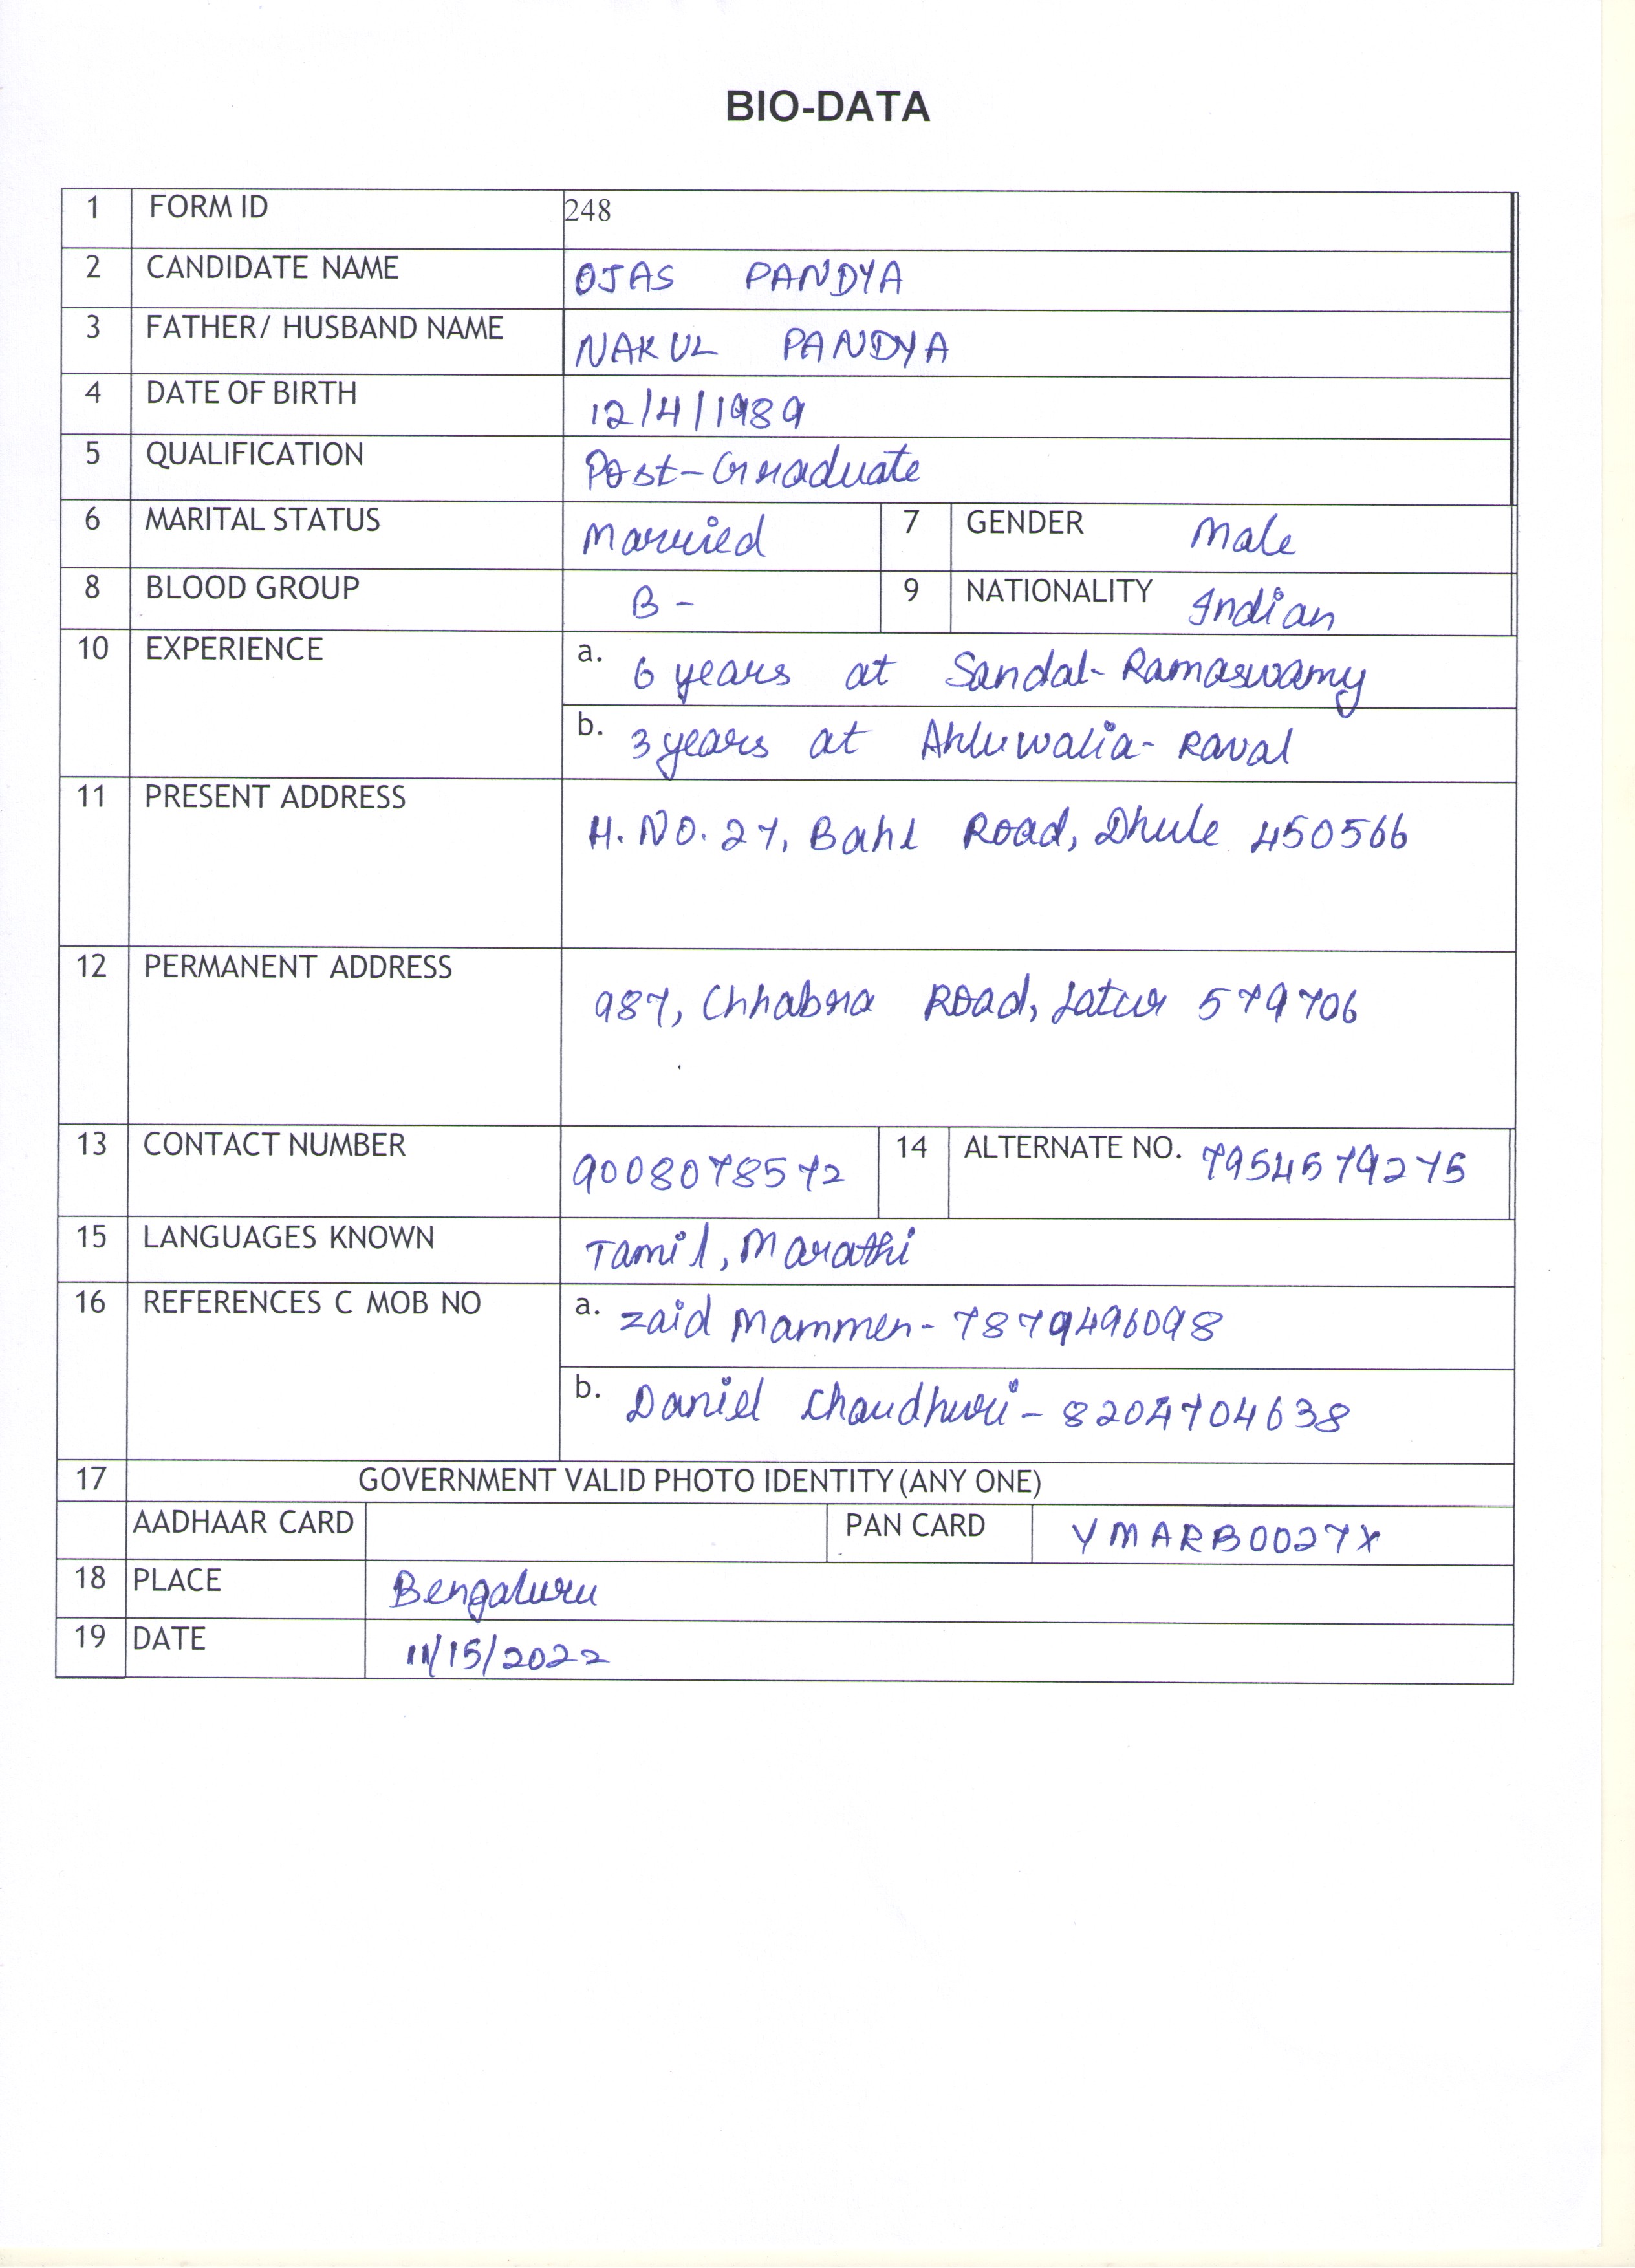 BIO-DATA
1 FORM ID 248
2 CANDIDATE NAME OJAS PANDYA
3 FATHER/ HUSBAND NAME NAKUL PANDYA
4 DATE OF BIRTH 12/4/1989
5 QUALIFICATION Post-Graduate
6 MARITAL STATUS Married 7 GENDER Male
8 BLOOD GROUP B- 9 NATIONALITY Indian
10 EXPERIENCE a. 6 years at Sandal-Ramaswamy
b. 3 years at Ahluwalia-Raval
11 PRESENT ADDRESS H.NO. 27, Bahl Road, Dhule 450566
12 PERMANENT ADDRESS 987, Chhabra Road, Latur 579706
13 CONTACT NUMBER 9008078572 14 ALTERNATE NO. 7954579275
15 LANGUAGES KNOWN Tamil, Marathi
16 REFERENCES C MOB NO a. Zaid Mammen- 7879496098
b. Daniel Chaudhuri- 8204704638
17 GOVERNMENT VALID PHOTO IDENTITY (ANY ONE)
AADHAAR CARD PAN CARD YMARB0027X
18 PLACE Bengaluru
19 DATE 11/15/2022